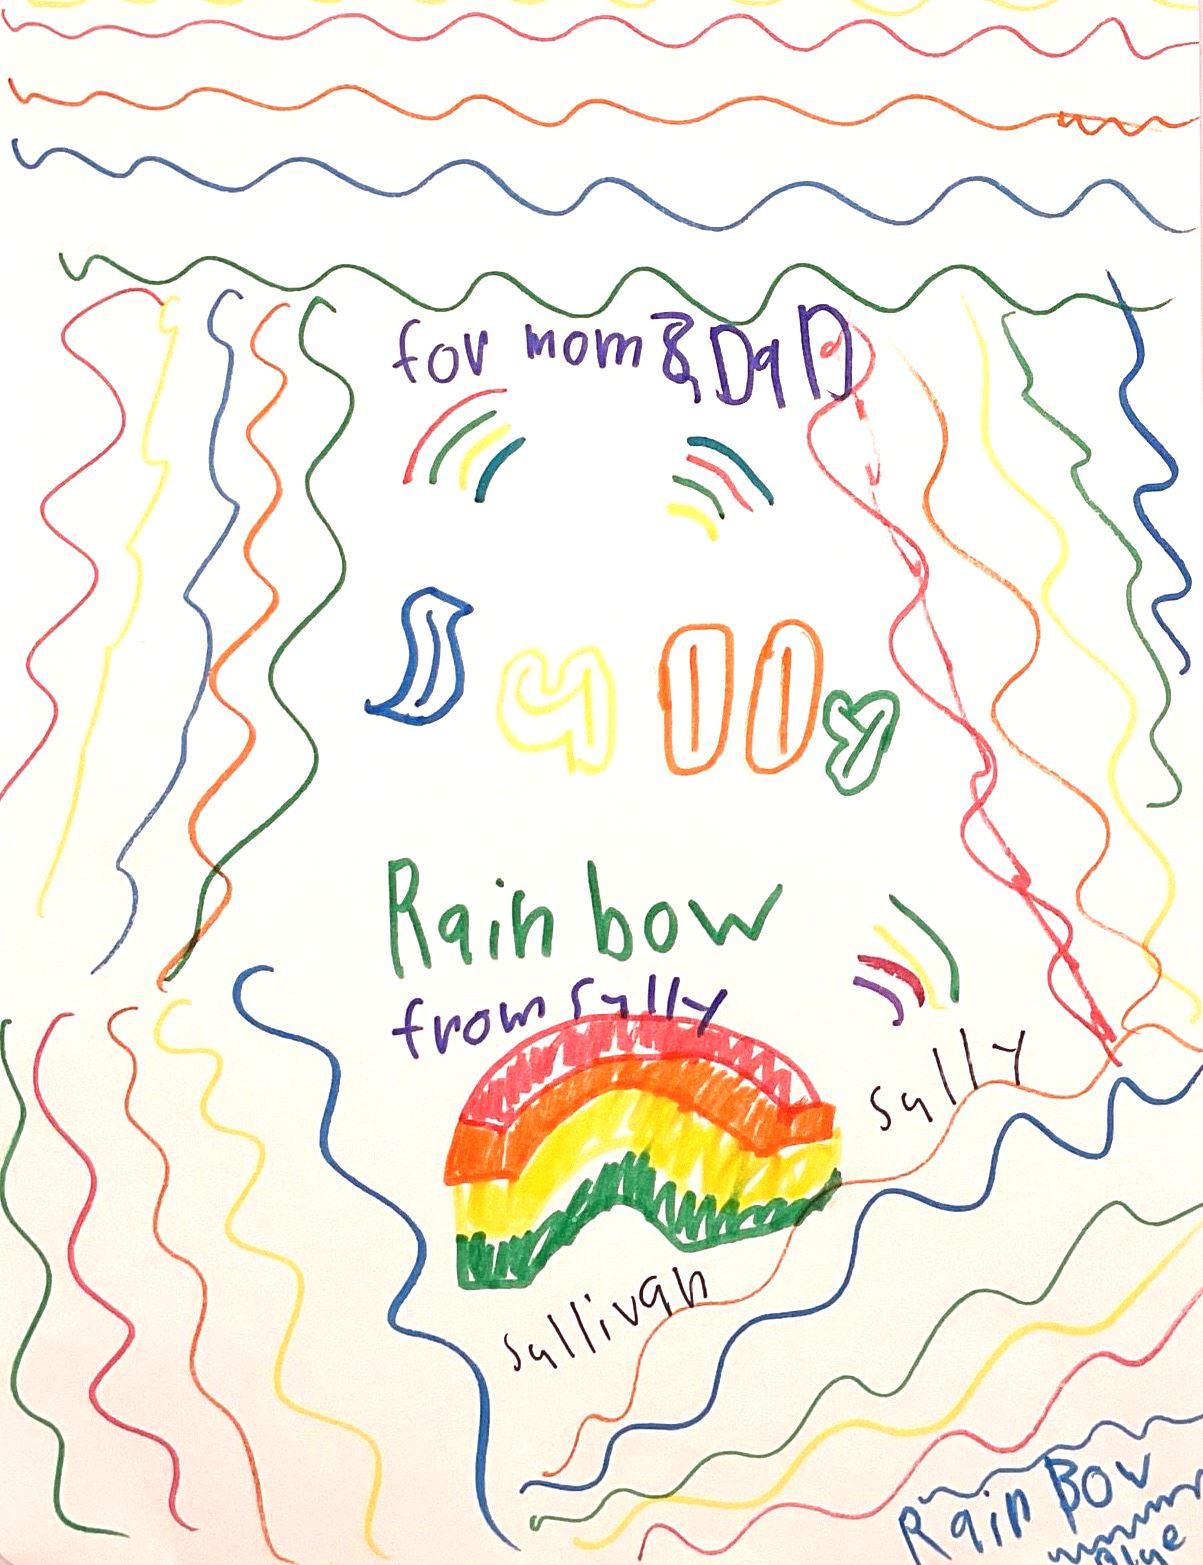 for mom & DaD
Sally
Rainbow
from Sally
Sally
Sallivan
Rain Bow